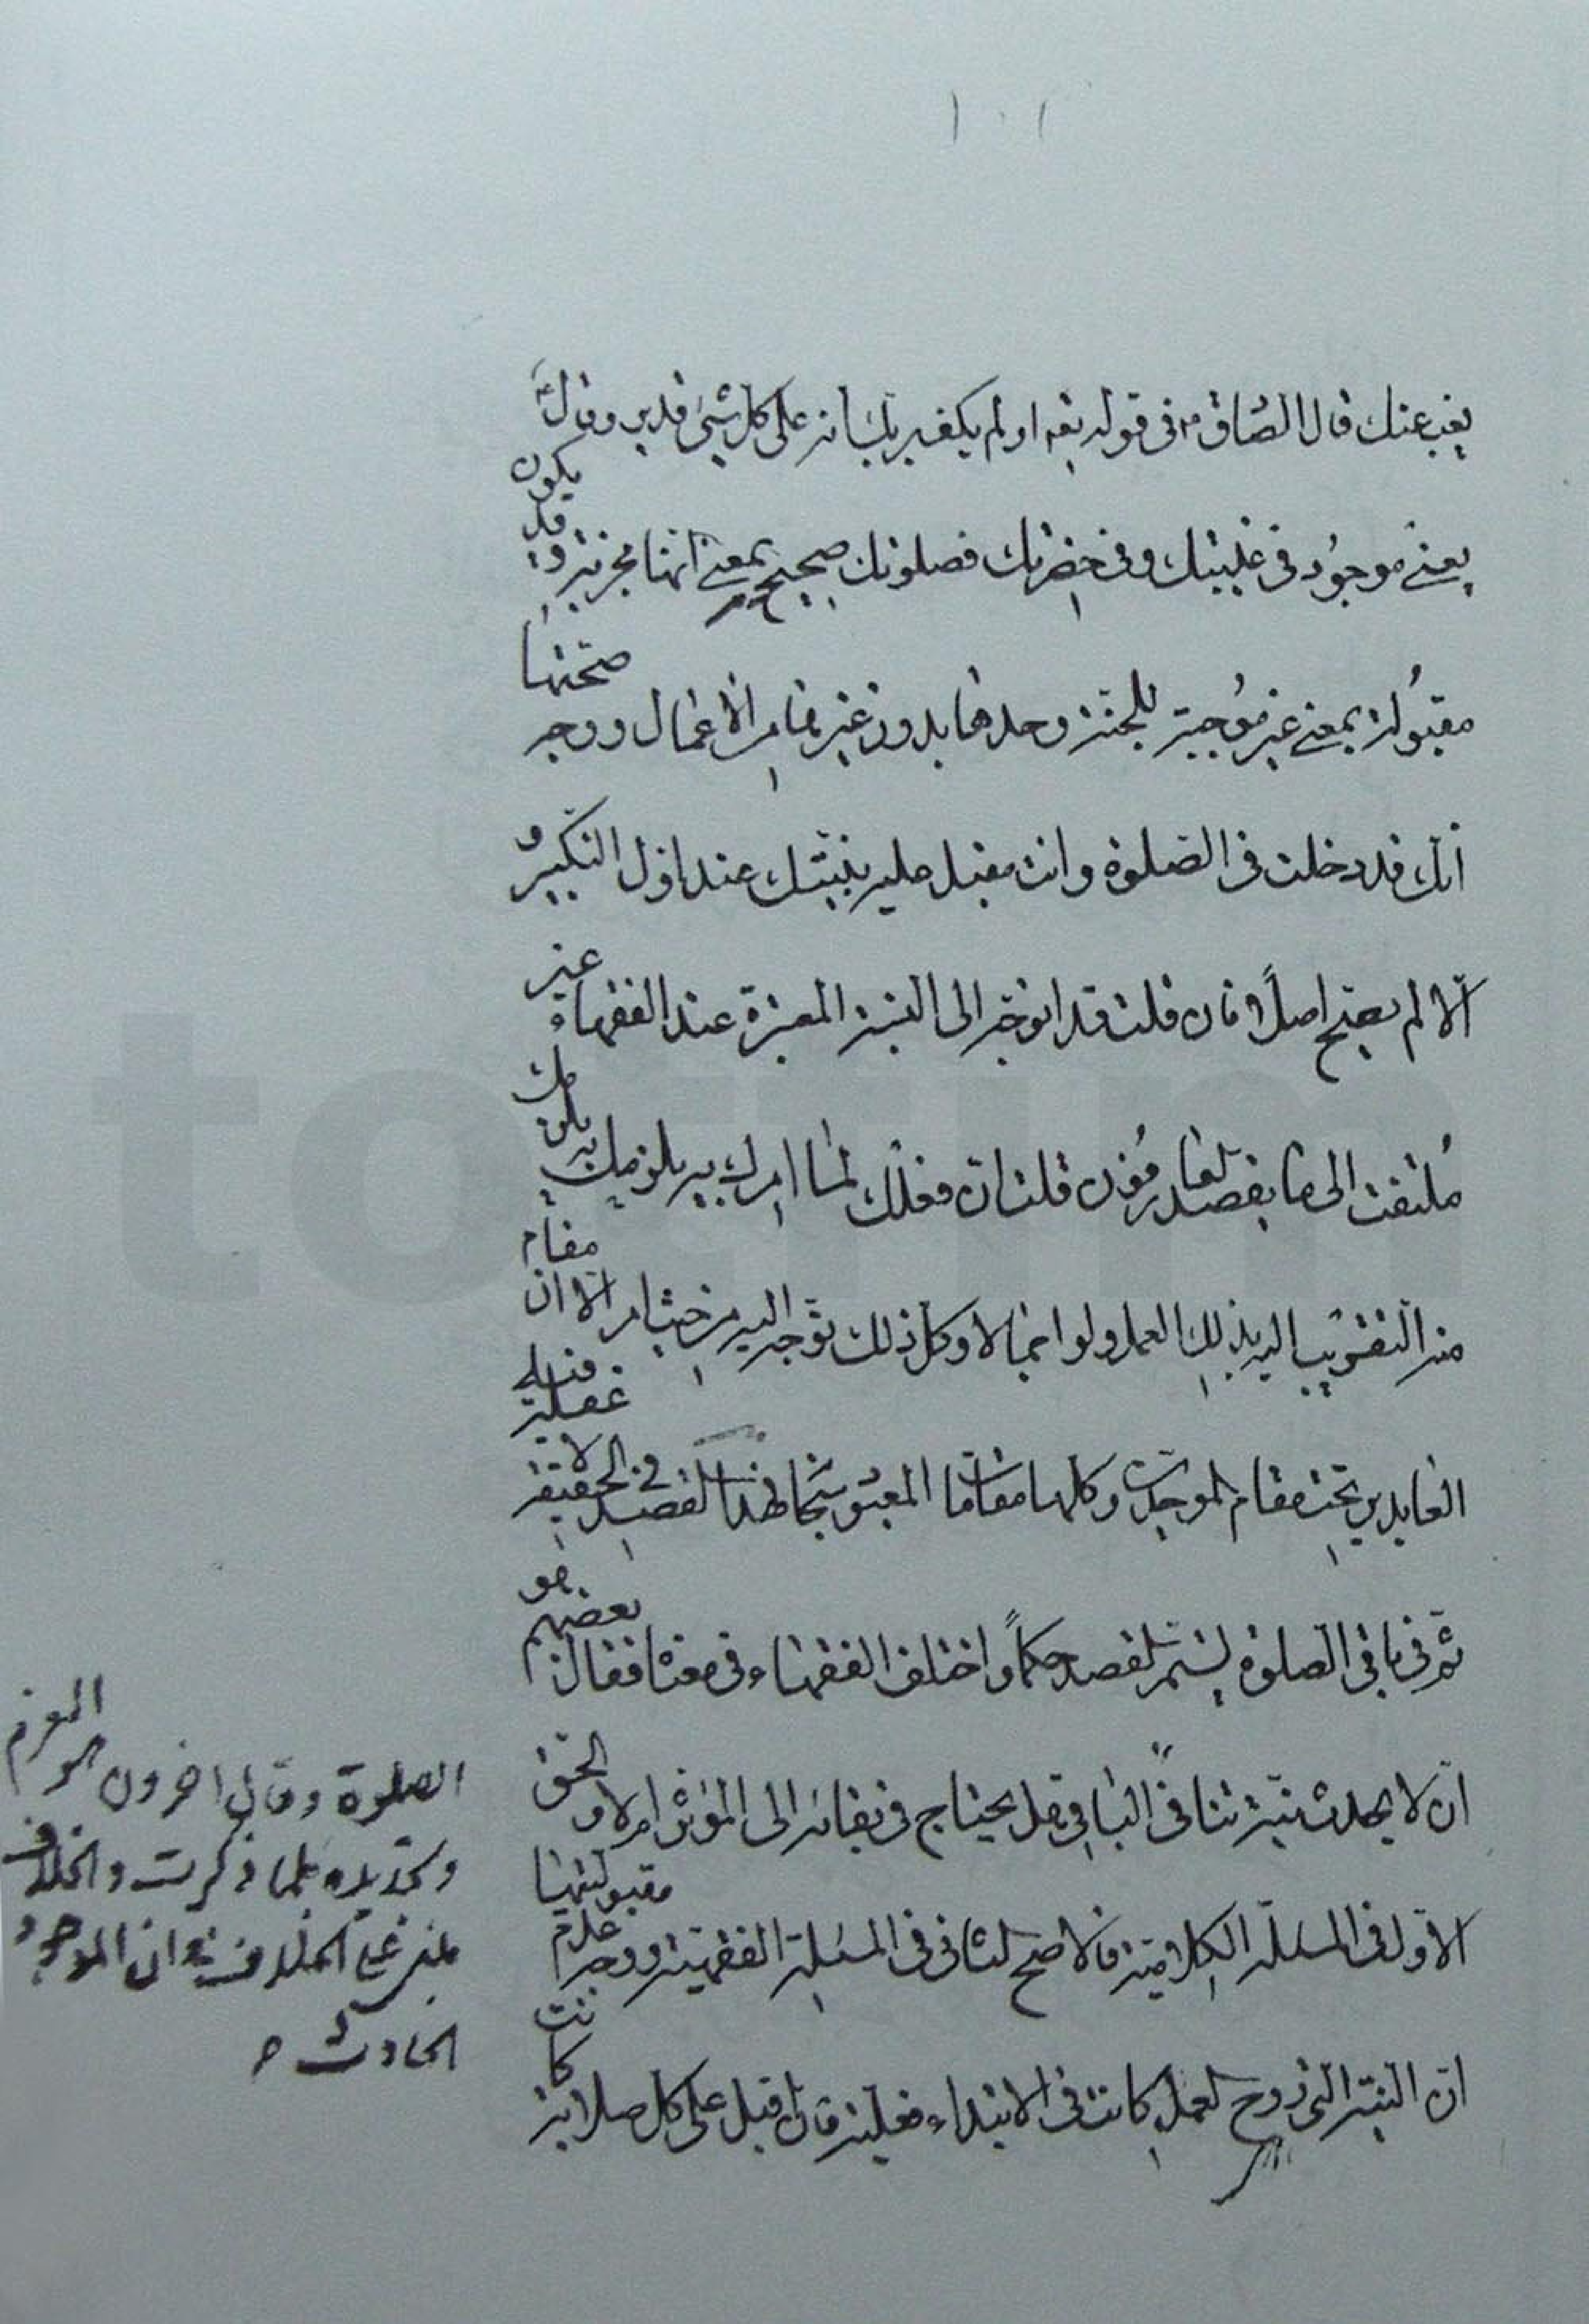 يغب عنك قال الصادق ع في قوله تعه اولم يكف بربك انه على كل شيئ قدير وقال
يعني موجود في غيبتك وفي حضرتك فصلوتك صحيحة بمعنى انها مجزية وقد يكون
مقبولة بمعنى غير موجبة للجنة وحدها بدون غيرها من الاعمال ووجه صحتها
انك قد دخلت في الصلوة وانت مقبل عليه بنيتك عند اول التكبير و
الا لم يصح اصلا فان قلت قد اتوجه الى النية المعتبرة عند الفقهاء غير
ملتفت الى ما يقصد العارفون قلت ان فعلك لما امرك به يلزمك به
منه التقرب اليه بذلك العمل ولو اجمالا وكل ذلك توجه اليه من حيث امر الا ان مقام
العابدين تحت مقام الموحدين وكلها مقامات المعبود سبحانه فهذا القصد في الحقيقة لا غفلة فيه
ثم في باقي الصلوة يستمر القصد حكما واختلف الفقهاء في معناه فقال بعضهم هو
ان لا يحدث نية تنافي الباقي هل يحتاج في بقائه الى المؤثر ام لا و الحق
الاول في المسئلة الكلامية فالاصح الثاني في المسئلة الفقهية ووجه عدم مقبوليتها
ان النية التي روح العمل كانت في الابتداء فعلية قال اقبل على كل صلاتة كانت
الصلوة وقال اخرون هو العزم
وتجديده كلما ذكرت والخلاف
مفرع على الخلاف في ان الموجود
الحادث